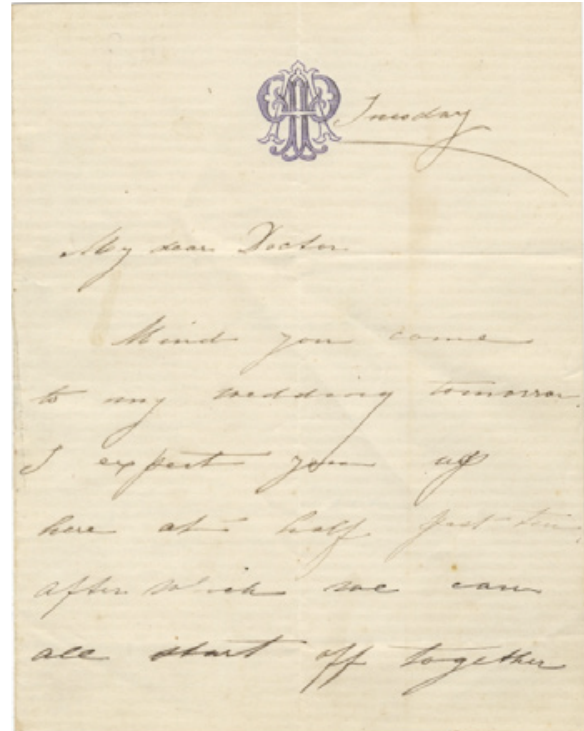 Tuesday
My dear Doctor
Mind you come
to my wedding tomorrow.
I expect you up
here at half past ten,
after which we can
all start off together